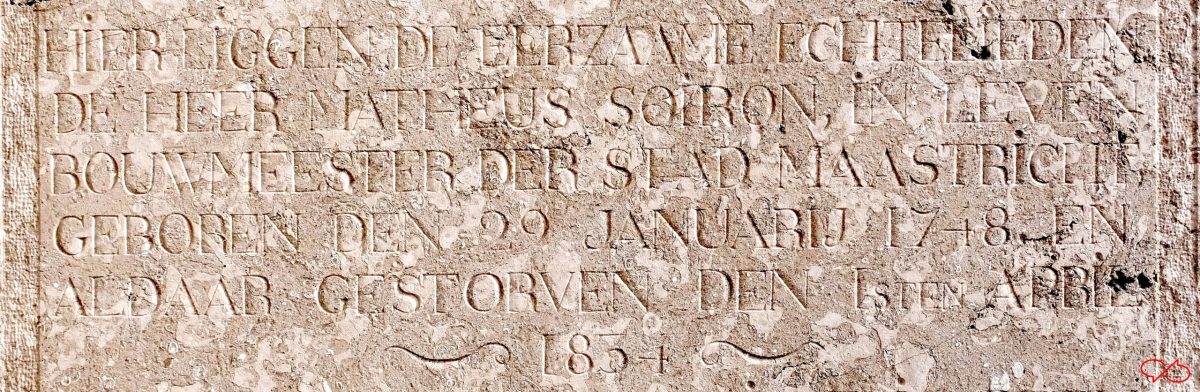 HIER LIGGEN DE EERZAME ECHTELIEDEN
DE HEER MATHEUS SOIRON, IN LEEVEN
BOUWMEESTER DER STAD MAASTRICHT,
GEBOREN DEN 29 JANUARIJ 1748 EN
ALDAAR GESTORVEN DEN 1STEN APRIL
1834